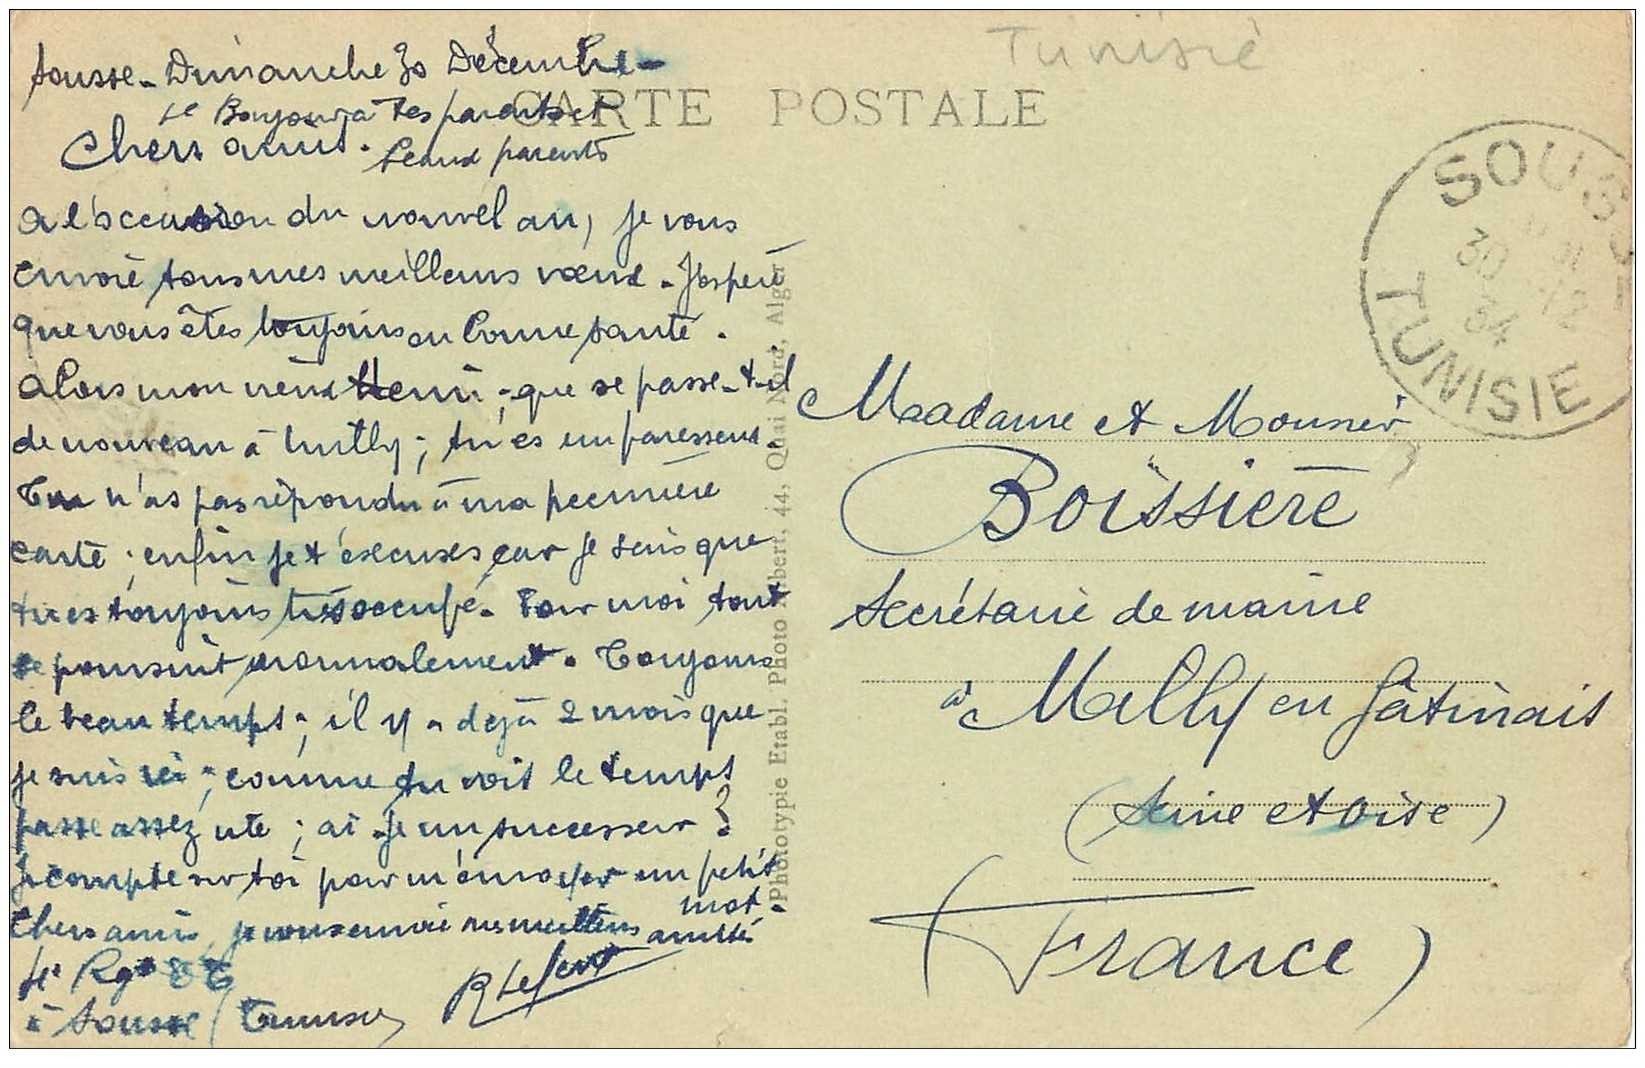 Tunisie
CARTE POSTALE
Sousse - Dimanche 30 Décembre -
le Bonjour à tes parents et
beaux parents
Chers amis.
A l'occasion du nouvel an, je vous
envoie tous mes meilleurs voeux. J'espère
que vous êtes toujours en bonne santé.
Alors mon vieux Henri, que se passe-t-il
de nouveau à Milly; tu es un paresseux.
Tu n'as pas répondu à ma première
carte; enfin je t'excuses car je sais que
tu es toujours très occupé. Pour moi tout
se poursuit normalement. Toujours
le beau temps; il y a déjà 2 mois que
je suis ici; comme tu voit le temps
passe assez vite; ai-je un successeur?
Je compte sur toi pour m'envoyer un petit
mot.
Chers amis, je vous envoie mes meilleurs amitiés
R Lefevre
4e Rgt
à Sousse (Tunisie)
Phototypie Etabl. Photo Albert, 44, Quai Nord, Alger
SOUSSE
30 12
34
TUNISIE
Madame et Monsieur
Boissière
Secrétaire de mairie
à Milly en Gâtinais
(Seine et Oise)
(France)